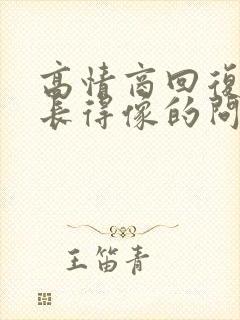 高情商回復
長得像的問
王笛青